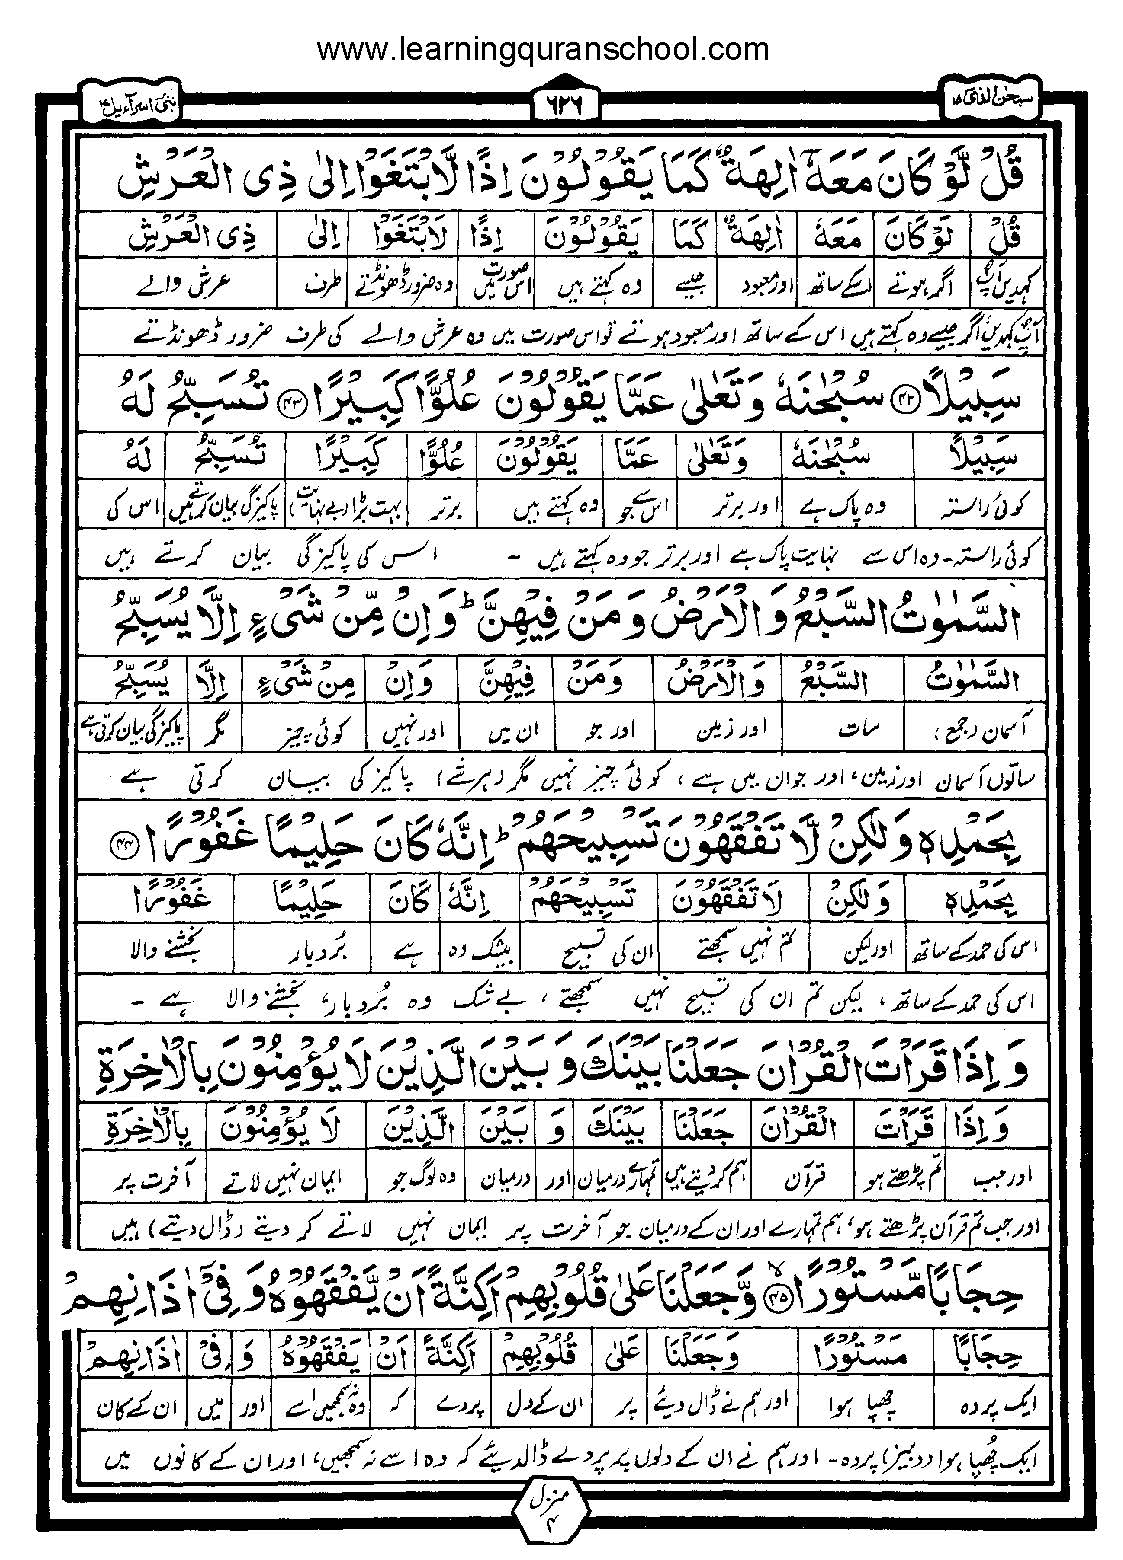 www.learningquranschool.com
سبحٰن الذی ۱۵
۶۲۶
بنی اسرآءیل ۱۷
قُلْ لَّوْ كَانَ مَعَهٗۤ اٰلِهَةٌ كَمَا يَقُوْلُوْنَ اِذًا لَّابْتَغَوْا اِلٰى ذِى الْعَرْشِ
قُلْ لَوْ كَانَ مَعَهٗ اٰلِهَةٌ كَمَا يَقُوْلُوْنَ اِذًا لَابْتَغَوْا اِلٰى ذِى الْعَرْشِ
کہدیں آپؐ اگر ہوتے اسکے ساتھ اور معبود جیسے وہ کہتے ہیں اس صورت میں وہ ضرور ڈھونڈتے طرف عرش والے
آپؐ کہدیں اگر جیسے وہ کہتے ہیں اس کے ساتھ اور معبود ہوتے تو اس صورت میں وہ عرش والے کی طرف ضرور ڈھونڈتے
سَبِيْلًا ﴿۴۲﴾ سُبْحٰنَهٗ وَتَعٰلٰى عَمَّا يَقُوْلُوْنَ عُلُوًّا كَبِيْرًا ﴿۴۳﴾ تُسَبِّحُ لَهُ
سَبِيْلًا سُبْحٰنَهٗ وَتَعٰلٰى عَمَّا يَقُوْلُوْنَ عُلُوًّا كَبِيْرًا تُسَبِّحُ لَهُ
کوئی راستہ وہ پاک ہے اور برتر اس سے جو وہ کہتے ہیں برتر بہت بڑا (بے نہایت) پاکیزگی بیان کرتے ہیں اس کی
کوئی راستہ۔ وہ اس سے نہایت پاک ہے اور برتر جو وہ کہتے ہیں ۔ اس کی پاکیزگی بیان کرتے ہیں
السَّمٰوٰتُ السَّبْعُ وَالْاَرْضُ وَمَنْ فِيْهِنَّ ؕ وَاِنْ مِّنْ شَىْءٍ اِلَّا يُسَبِّحُ
السَّمٰوٰتُ السَّبْعُ وَالْاَرْضُ وَمَنْ فِيْهِنَّ وَاِنْ مِنْ شَىْءٍ اِلَّا يُسَبِّحُ
آسمان (جمع) سات اور زمین اور جو ان میں اور نہیں کوئی چیز مگر پاکیزگی بیان کرتی ہے
ساتوں آسمان اور زمین، اور جو ان میں ہے، کوئی چیز نہیں مگر (ہر شے) پاکیزگی بیان کرتی ہے
بِحَمْدِهٖ وَلٰكِنْ لَّا تَفْقَهُوْنَ تَسْبِيْحَهُمْ ؕ اِنَّهٗ كَانَ حَلِيْمًا غَفُوْرًا ﴿۴۴﴾
بِحَمْدِهٖ وَلٰكِنْ لَا تَفْقَهُوْنَ تَسْبِيْحَهُمْ اِنَّهٗ كَانَ حَلِيْمًا غَفُوْرًا
اس کی حمد کے ساتھ اور لیکن تم نہیں سمجھتے ان کی تسبیح بیشک وہ ہے بُردبار بخشنے والا
اس کی حمد کے ساتھ، لیکن تم ان کی تسبیح نہیں سمجھتے، بے شک وہ بُردبار، بخشنے والا ہے ۔
وَاِذَا قَرَاْتَ الْقُرْاٰنَ جَعَلْنَا بَيْنَكَ وَبَيْنَ الَّذِيْنَ لَا يُؤْمِنُوْنَ بِالْاٰخِرَةِ
وَاِذَا قَرَاْتَ الْقُرْاٰنَ جَعَلْنَا بَيْنَكَ وَ بَيْنَ الَّذِيْنَ لَا يُؤْمِنُوْنَ بِالْاٰخِرَةِ
اور جب تم پڑھتے ہو قرآن ہم کردیتے ہیں تمہارے درمیان اور درمیان وہ لوگ جو ایمان نہیں لاتے آخرت پر
اور جب تم قرآن پڑھتے ہو، ہم تمہارے اور ان کے درمیان جو آخرت پر ایمان نہیں لاتے کر دیتے (ڈال دیتے) ہیں
حِجَابًا مَّسْتُوْرًا ﴿۴۵﴾ ۙ وَّجَعَلْنَا عَلٰى قُلُوْبِهِمْ اَكِنَّةً اَنْ يَّفْقَهُوْهُ وَفِىْۤ اٰذَانِهِمْ
حِجَابًا مَسْتُوْرًا وَجَعَلْنَا عَلٰى قُلُوْبِهِمْ اَكِنَّةً اَنْ يَفْقَهُوْهُ وَ فِىْ اٰذَانِهِمْ
ایک پردہ چھپا ہوا اور ہم نے ڈال دیئے پر ان کے دل پردے کہ وہ نہ سمجھیں اسے اور میں ان کے کان
ایک چُھپا ہوا (دبیز) پردہ۔ اور ہم نے ان کے دلوں پر پردے ڈالدیئے کہ وہ اسے نہ سمجھیں، اور ان کے کانوں میں
منزل
۴